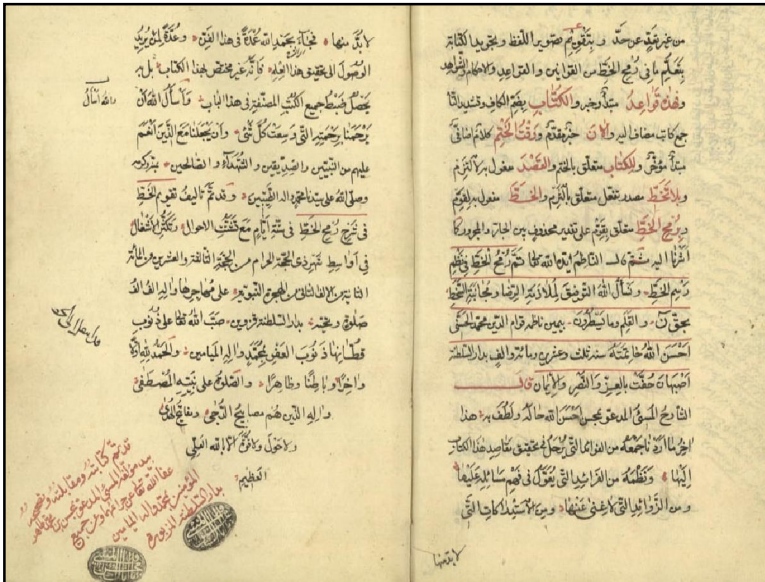 من غير تعدٍّ عن حدّ و بتقويم تصوير اللفظ و بحروف الكتابة
بتعلّم ما في رمح الخط من القوانين و القواعد والاحكام والشواهد
وهذه قواعد مبتدأ وخبر والكتّاب بضم الكاف وتشديد التاء
جمع كاتب مضاف اليه والآن خبر مقدم و وقت الختم كلام اضافي
مبتدأ مؤخر وللكتاب متعلق بالختم والقصد مفعول به لالتزم
وبلا تخط مصدر تفعل متعلق بالتزم والخط مفعول به لقوّم
وبرمح الخط متعلق بقوّم على تقدير محذوف بين الجار والمجرور كما
اشرنا اليه ثم قال الناظم ايده الله تعالى تمّ رمح الخط في نظم
رسم الخط ونسأل الله التوفيق لملازمة الرضا ومجانبة السخط
بحق ن والقلم وما يسطرون بيمين ناظمه قوام الدين محمد الحسني
احسن الله خاتمته سنة ثلث وعشرين ومائة والف بدار السلطنة
اصبهان حفت بالعز والنصر والايمان قال
الشارح المسيء المدعو بمحسن احسن الله حاله ولطف به هذا
اخر ما اردنا جمعه من الفوائد التي يرحل لتحقيق مقاصد هذا الكتاب
اليها ونظمه من الفرائد التي يعوّل في فهم مسائله عليها
ومن الزوائد التي لا غنى عنها ومن الاستدراكات التي
لا بد منها
لا بدّ منها فجاء بحمد الله عمدة في هذا الفن وعدّة لمن يريد
الوصول الى تحقيق هذا النوع كأنه غير مختص بهذا الكتاب بل به
يحصل ضبط جميع الكتب المصنفة في هذا الباب واسأل الله ان
والله اسأل
يرحمنا برحمته التي وسعت كل شيء وان يجعلنا مع الذين انعم
عليهم من النبيين والصديقين والشهداء والصالحين
وصلى الله على سيدنا محمد واله الطيبين وقد تمّ تاليف تقويم الخط
في شرح رمح الخط في ستة ايام مع تشتت الاحوال وتكثر الاشغال
في اواسط شهر ذي الحجة الحرام من الحجة الثالثة والعشرين من المائة
الثانية من الالف الثاني من الهجرة النبوية على مهاجرها واله الف الف
صلوة وتحية بدار السلطنة قزوين صبّ الله تعالى على ذنوب
قطانها ذنوب العفو بمحمد واله الميامين والحمد لله اولا
واخرا وباطنا وظاهرا والصلوة على نبيه المصطفى
واله الذين هم مصابيح الدجى ومفاتيح الهدى
ولا حول ولا قوة الا بالله العلي
العظيم
قد تم كتابة ومقابلة وتصحيحا
بيد مؤلفه المسيء المدعو بمحسن بن محمد طاهر
عفا الله تعالى عن جرائمهما
بمحمد واله الميامين
بدار السلطنة المزبورة